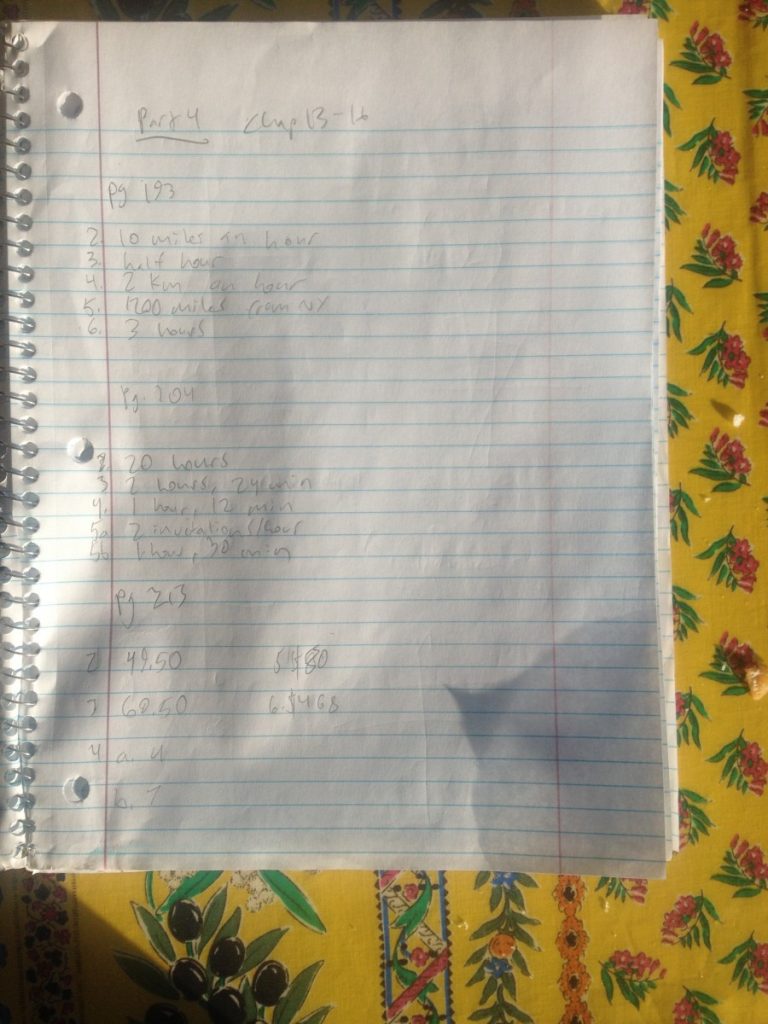 Part 4 Chap 13-16
pg 193
2. 10 miles an hour
3. half hour
4. 2 km an hour
5. 1200 miles from NY
6. 3 hours
pg. 204
20 hours
3 2 hours, 24 min
4. 1 hour, 12 min
5a 2 invitations/hour
5b 1 hour, 30 min
pg 213
2 49.50 5 $80
3 60.50 6. $468
4 a. 4
b. 7